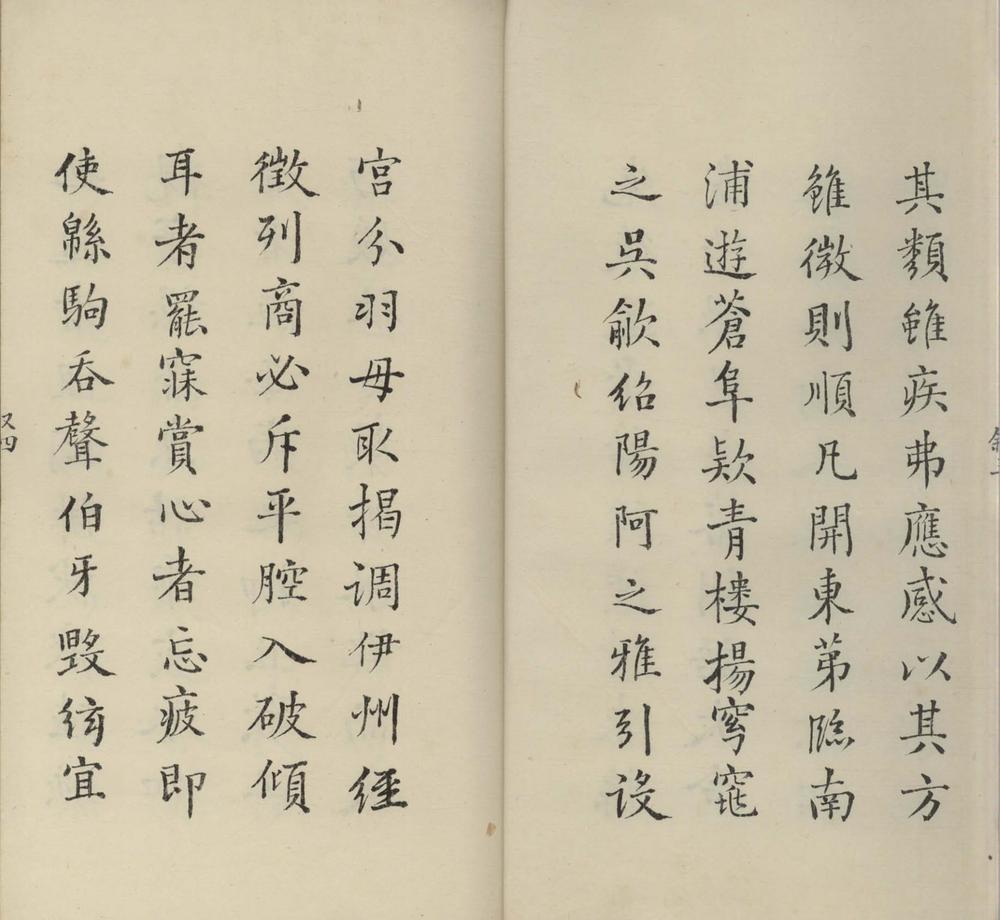 其類雖疾弗應感以其方
雖微則順凡開東第臨南
浦遊蒼阜款青楼揚窈窕
之吳歈紹陽阿之雅引設
宮分羽毋取揭調伊州經
徵列商必斥平腔入破傾
耳者罷寐賞心者忘疲即
使緜駒吞聲伯牙毀絃宜